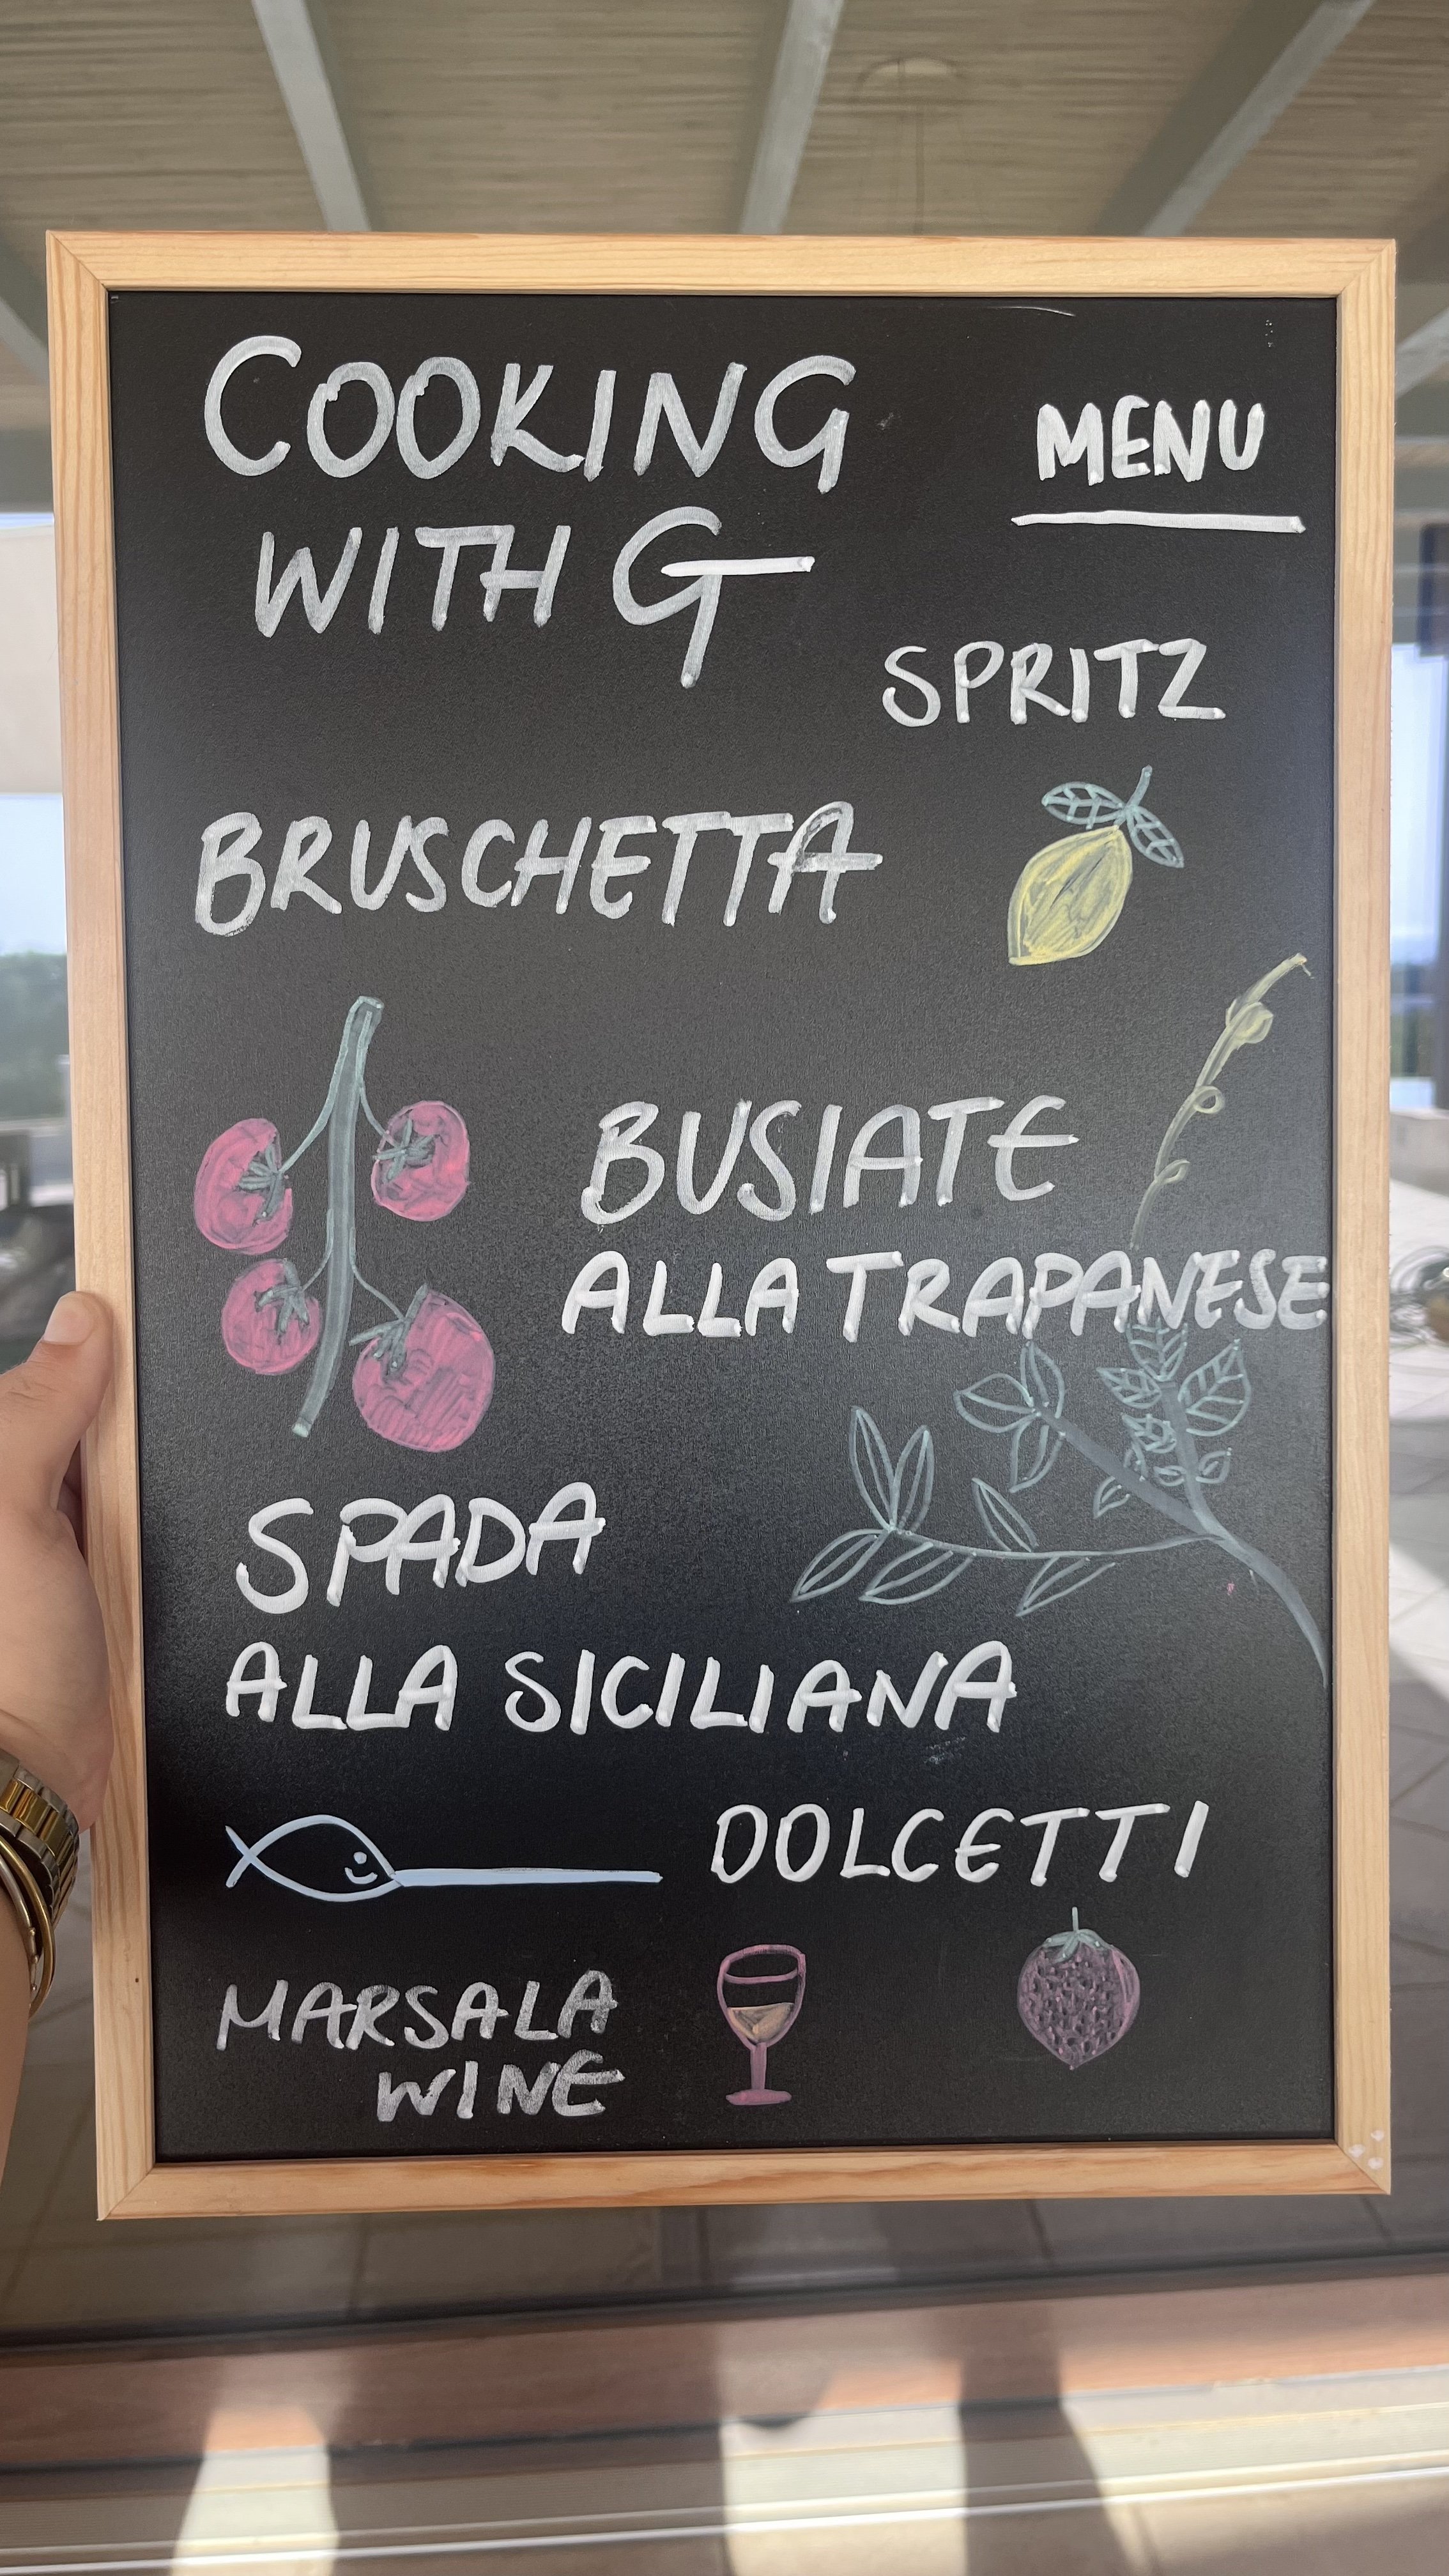 COOKING
WITH G
MENU
SPRITZ
BRUSCHETTA
BUSIATE
ALLA TRAPANESE
SPADA
ALLA SICILIANA
DOLCETTI
MARSALA
WINE